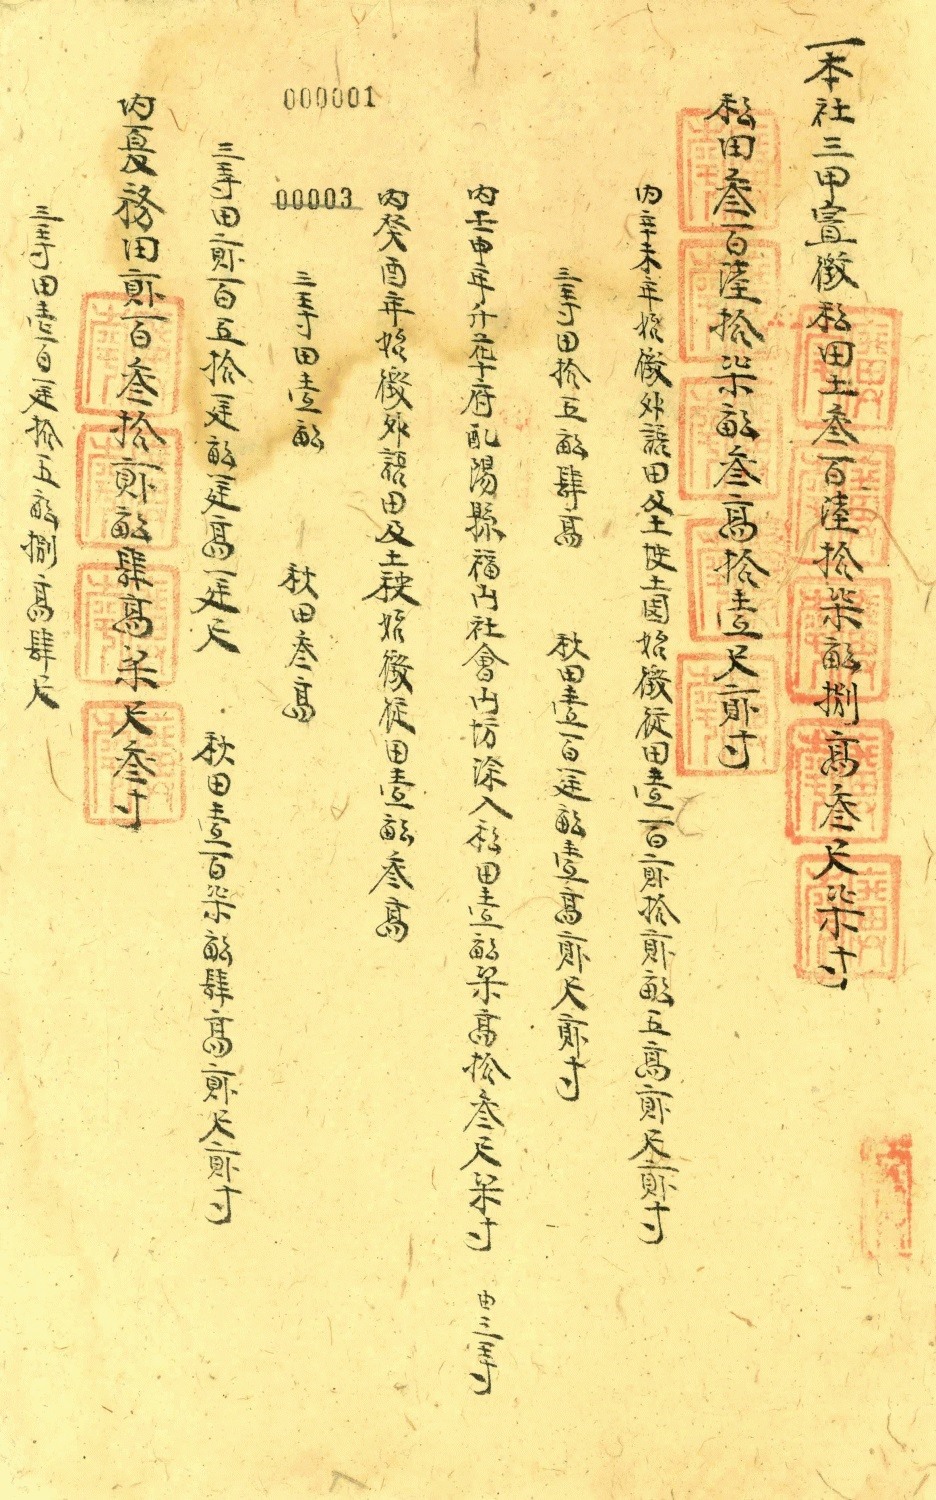 一本社三甲實徵私田土叁百陸拾柒畝捌高叁尺柒寸
私田叁百陸拾柒畝叁高拾壹尺貳寸
内辛未年始徵外諸田及土 土園始徵從田壹百貳拾貳畝五高貳尺貳寸
三等田拾五畝肆高 秋田壹百 畝壹高貳尺貳寸
内壬申年 府 陽縣福山社會山坊 入私田壹畝柒高拾叁尺柒寸 由三等
内癸酉年始徵外諸田及土 始徵從田壹畝叁高
三等田壹畝 秋田叁高
三等田貳百五拾 畝 高 尺 秋田壹百柒畝肆高貳尺貳寸
内夏務田貳百叁拾貳畝肆高柒尺叁寸
三等田壹百 拾五畝捌高肆尺
000001
00003